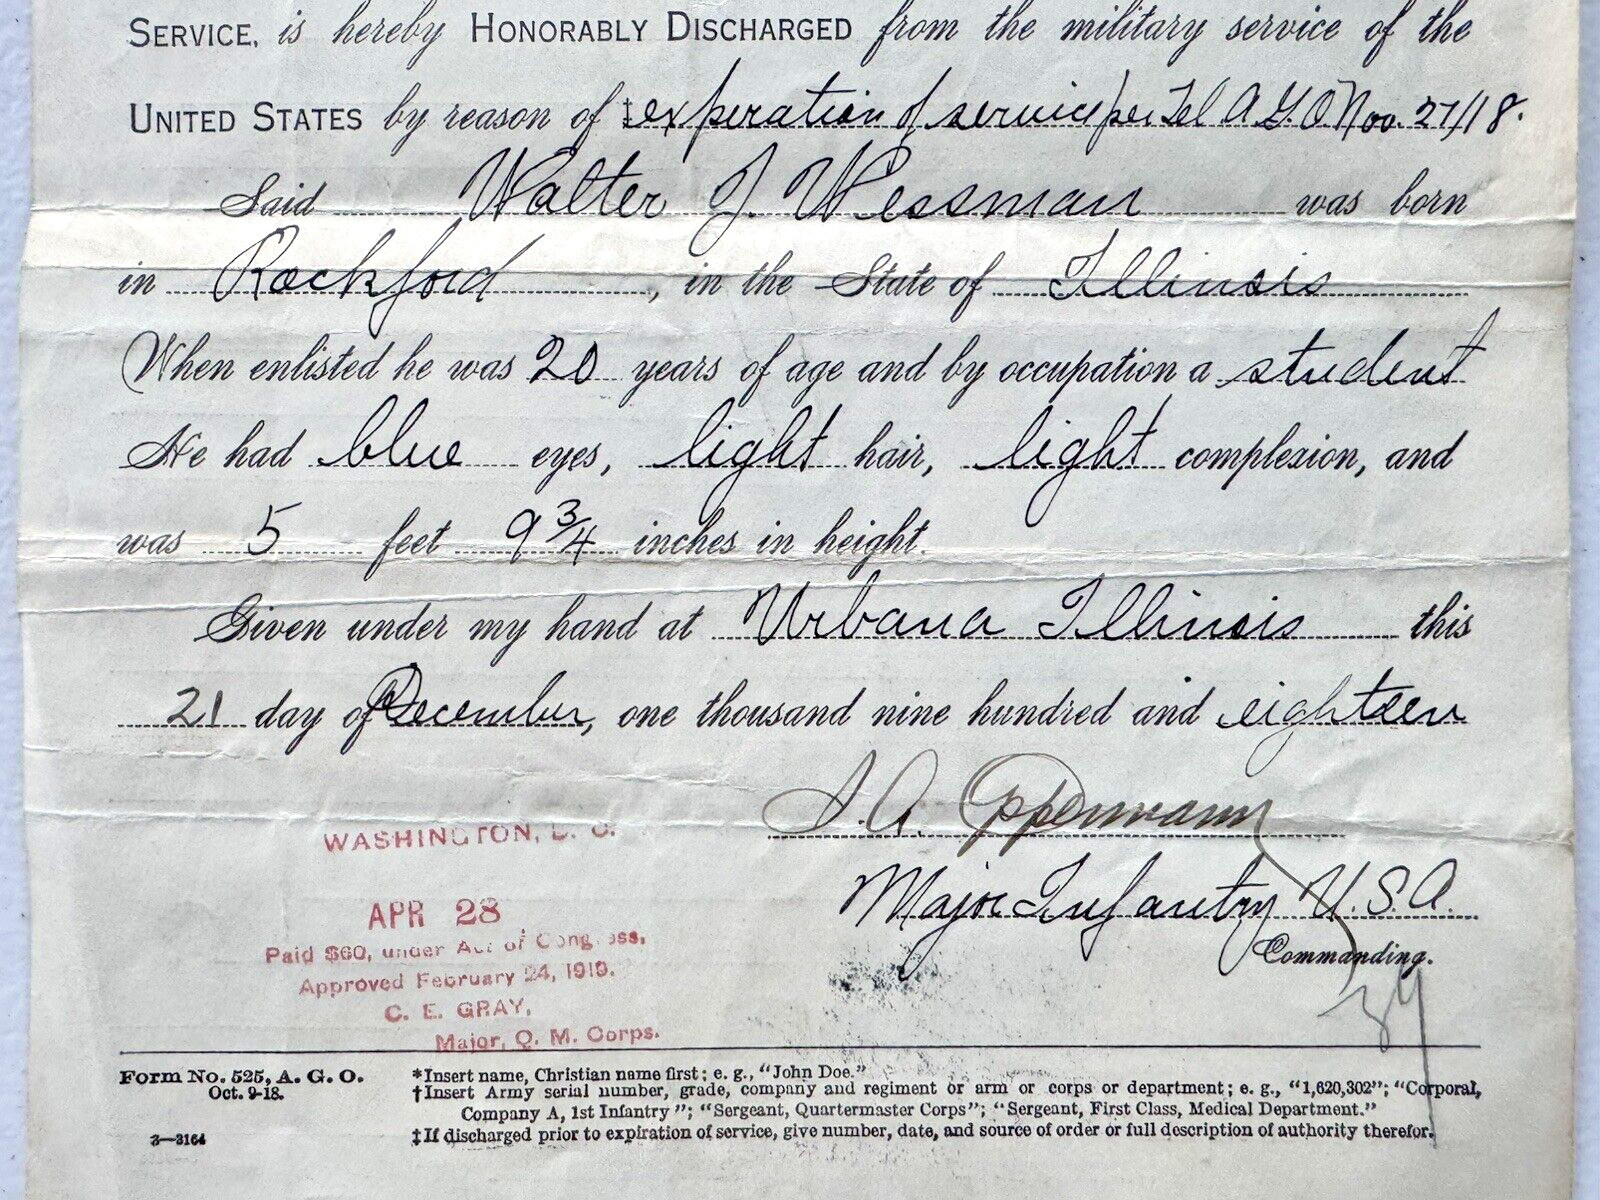 SERVICE, is hereby HONORABLY DISCHARGED from the military service of the
UNITED STATES by reason of ‡experation of service per Tel A.G.O. Nov. 27/18.
Said Walter J. Wessman was born
in Rockford, in the State of Illinois
When enlisted he was 20 years of age and by occupation a student
He had blue eyes, light hair, light complexion, and
was 5 feet 9 3/4 inches in height.
Given under my hand at Urbana Illinois this
21 day of December, one thousand nine hundred and eighteen
Oppermann
Major Infantry U.S.A.
Commanding.
WASHINGTON, D. C.
APR 28
Paid $60, under Act of Congress,
Approved February 24, 1919.
C. E. GRAY,
Major, Q. M. Corps.
Form No. 525, A. G. O.
Oct. 9-18.
3—3164
*Insert name, Christian name first; e. g., "John Doe."
†Insert Army serial number, grade, company and regiment or arm or corps or department; e. g., "1,620,302"; "Corporal,
Company A, 1st Infantry"; "Sergeant, Quartermaster Corps"; "Sergeant, First Class, Medical Department."
‡If discharged prior to expiration of service, give number, date, and source of order or full description of authority therefor.